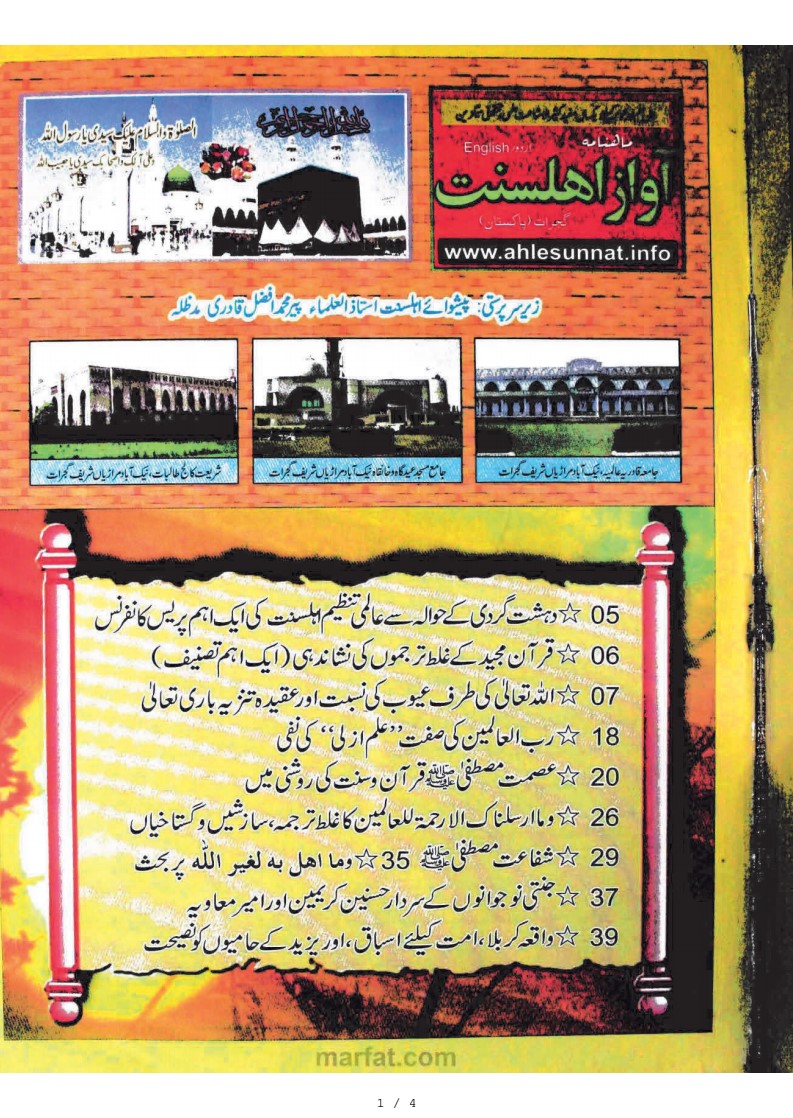 الصلوٰۃ والسلام علیک سیدی یا رسول اللہ
وعلیٰ آلک واصحابک سیدی یا حبیب اللہ
ماهنامه
اردو، English
آواز اهلسنت
گجرات (پاکستان)
www.ahlesunnat.info
زیرسرپرستی: پیشوائے اہلسنت استاذ العلماء پیر محمد افضل قادری مدظلہ
جامعہ قادریہ عالمیہ، نیک آباد مراڑیاں شریف گجرات
جامع مسجد عیدگاہ و خانقاہ نیک آباد مراڑیاں شریف گجرات
شریعت کالج طالبات، نیک آباد مراڑیاں شریف گجرات
05 ☆ دہشت گردی کے حوالہ سے عالمی تنظیم اہلسنت کی ایک اہم پریس کانفرنس
06 ☆ قرآن مجید کے غلط ترجموں کی نشاندہی (ایک اہم تصنیف)
07 ☆ اللہ تعالیٰ کی طرف عیوب کی نسبت اور عقیدہ تنزیہ باری تعالیٰ
18 ☆ رب العالمین کی صفت ”علم ازلی“ کی نفی
20 ☆ عصمت مصطفیٰ ﷺ قرآن وسنت کی روشنی میں
26 ☆ وما ارسلناک الا رحمة للعالمین کا غلط ترجمہ، سازشیں وگستاخیاں
29 ☆ شفاعت مصطفیٰ ﷺ 35 ☆ وما اهل به لغير الله پر بحث
37 ☆ جنتی نوجوانوں کے سردار حسنین کریمین اور امیر معاویہ
39 ☆ واقعہ کربلا، امت کیلئے اسباق، اور یزید کے حامیوں کو نصیحت
marfat.com
1 / 4